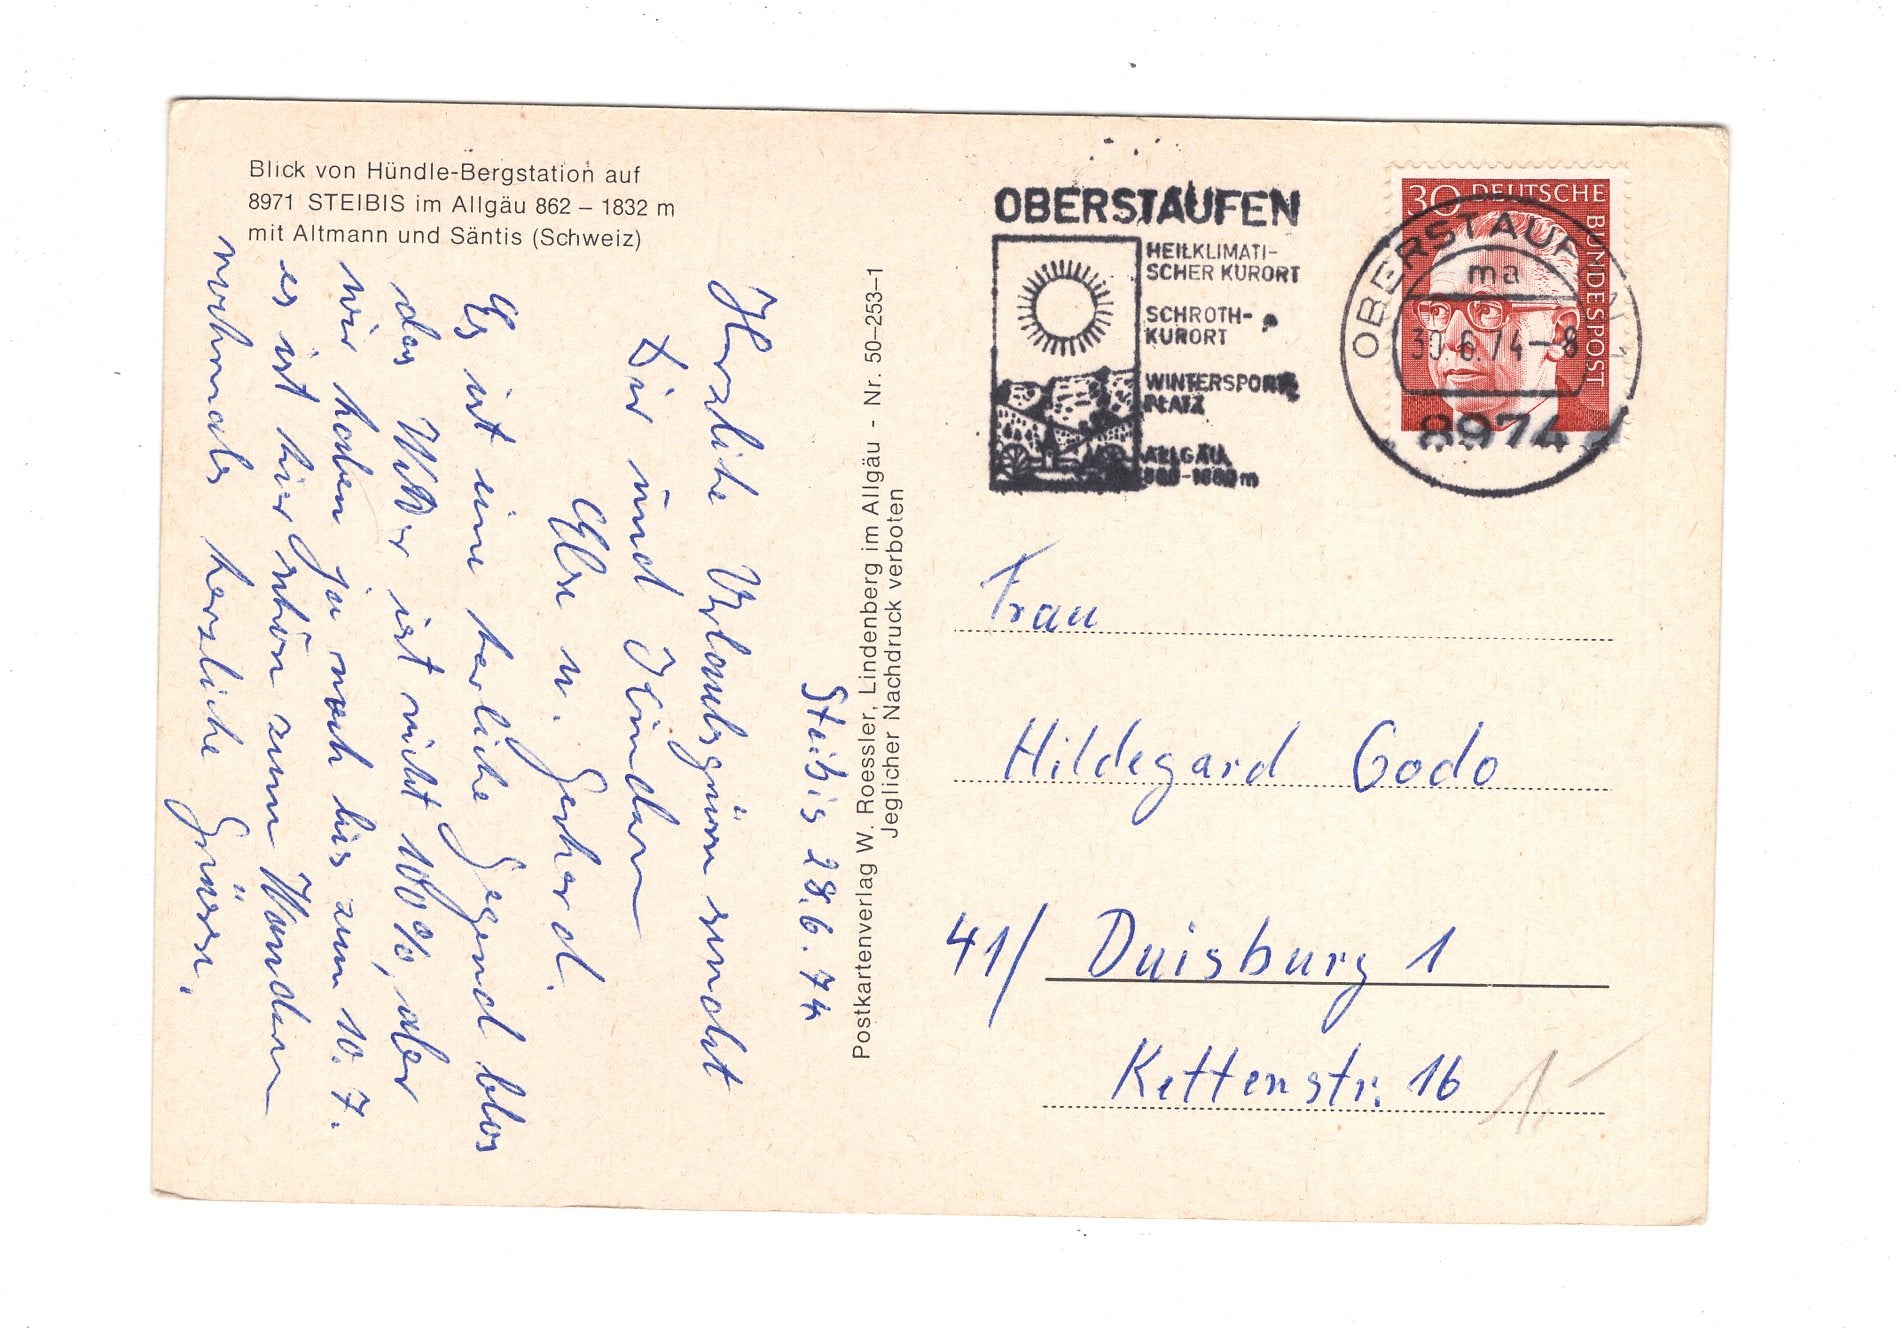 Blick von Hündle-Bergstation auf
8971 STEIBIS im Allgäu 862 – 1832 m
mit Altmann und Säntis (Schweiz)
Steibis 28.6.74
Herzliche Urlaubsgrüsse sendet
Dir und Kindern
Else u. Gerhard.
Es ist eine herliche Gegend blos
das Wetter ist nicht 100%, aber
wir haben ja noch bis zum 10.7.
es ist hier schön zum Wandern
nochmals herzliche Grüsse.
Postkartenverlag W. Roessler, Lindenberg im Allgäu - Nr. 50–253–1
Jeglicher Nachdruck verboten
OBERSTAUFEN
HEILKLIMATI-
SCHER KURORT
SCHROTH-
KURORT
WINTERSPORT
PLATZ
ALLGÄU
30 DEUTSCHE
BUNDESPOST
OBERSTAUFEN 1
ma
30.6.74–8
8974
Frau
Hildegard Godo
41/ Duisburg 1
Kettenstr. 16
1.-